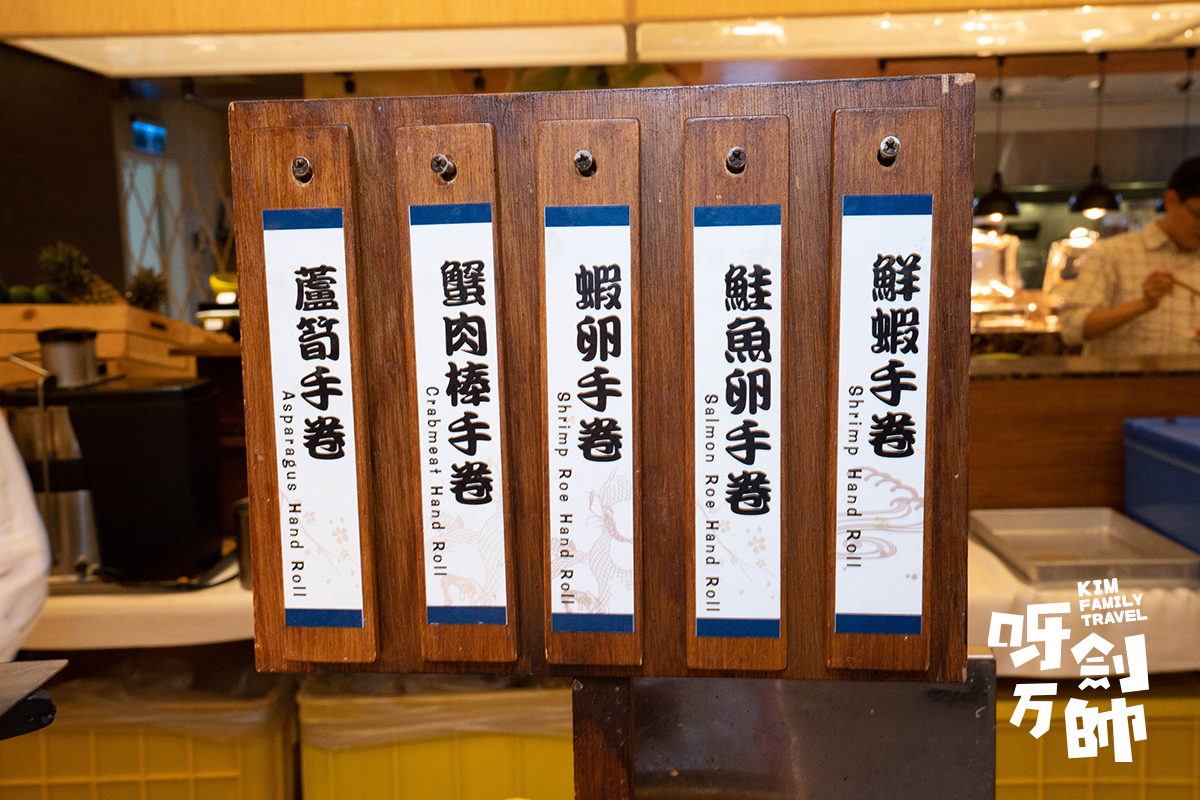 蘆筍手卷
Asparagus Hand Roll
蟹肉棒手卷
Crabmeat Hand Roll
蝦卵手卷
Shrimp Roe Hand Roll
鮭魚卵手卷
Salmon Roe Hand Roll
鮮蝦手卷
Shrimp Hand Roll
KIM
FAMILY
TRAVEL
呀劍
万帥